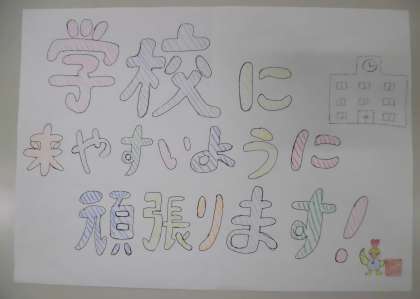 学校に
来やすいように
頑張ります!